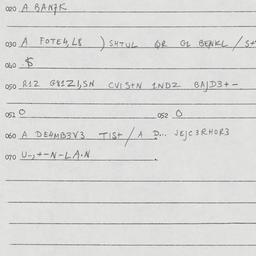 020 A BANZK
030 A FOTE4,L8 ) SHTUL QR G1 BENKL / S+
040 $
050 R12 G81Z1,SN CVIS+N 1NDZ BAJD3+-
051 O 052 O
060 A DE4MB3V3 TIS+ / A D... JEJC3RHOR3
070 U-,+-N-LA.N